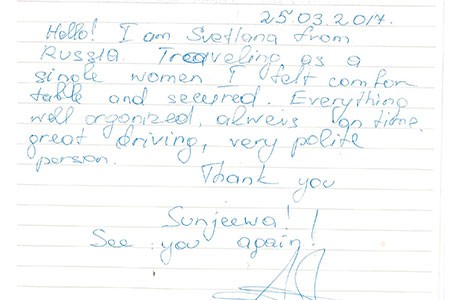 25 03.2017.
Hello! I am Svetlana from
Russia. Traveling as a
single women I felt comfor
table and secured. Everything
well organized, always on time.
great driving, very polite
person.
Thank you
Sunjeewa!!
See you again!